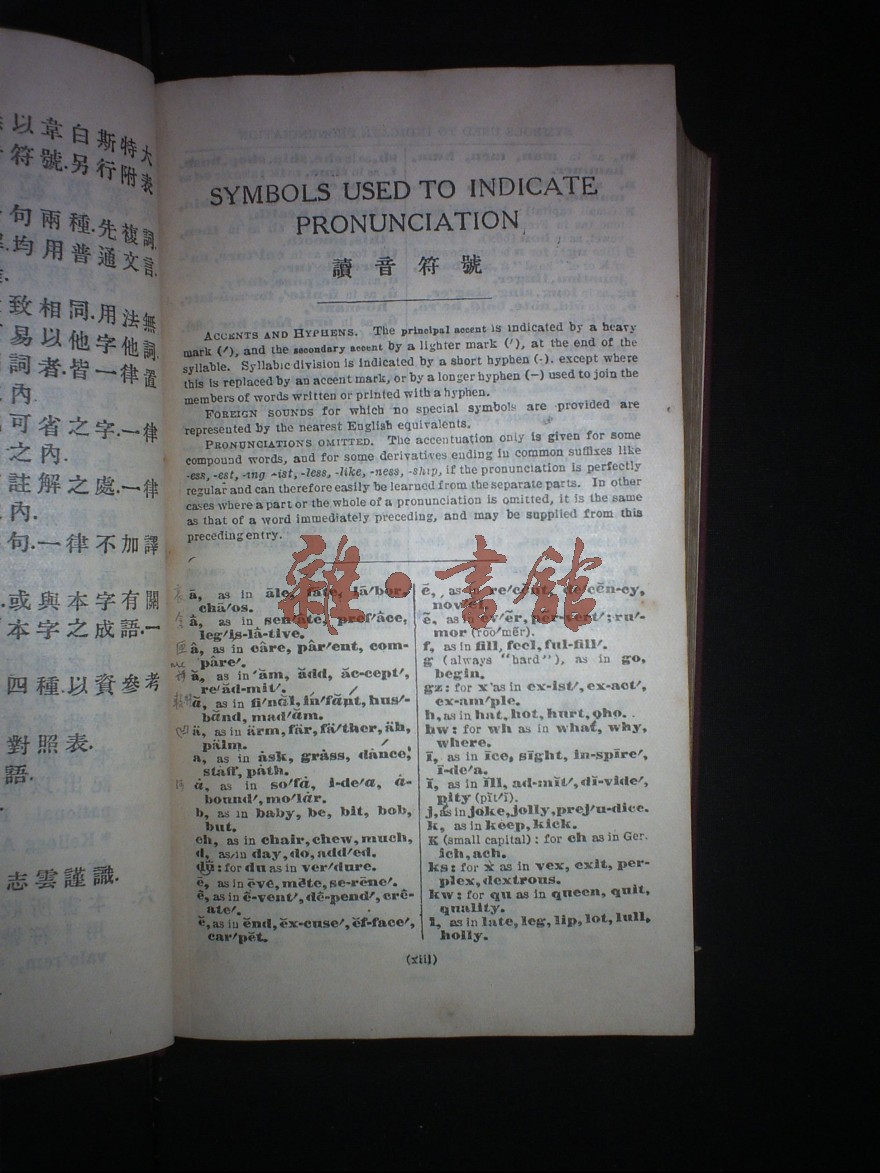 大表
特附
斯行
白另
韋號
以符
詞.
複文言.
先通
種.普
兩用
句均
無詞.置
法他律
用字一
同.以皆
相易者.
致詞
內.
一律
字.
之
省
可
之內.
一律
處.
之
解
註
內.
句.一律不加譯
或與本字有關
本字之成語.一
四種.以資參考
對照表.
語.
志雲謹識.
SYMBOLS USED TO INDICATE
PRONUNCIATION
讀音符號
ACCENTS AND HYPHENS. The principal accent is indicated by a heavy
mark (′), and the secondary accent by a lighter mark (′), at the end of the
syllable. Syllabic division is indicated by a short hyphen (-). except where
this is replaced by an accent mark, or by a longer hyphen (–) used to join the
members of words written or printed with a hyphen.
FOREIGN SOUNDS for which no special symbols are provided are
represented by the nearest English equivalents.
PRONUNCIATIONS OMITTED. The accentuation only is given for some
compound words, and for some derivatives ending in common suffixes like
-ess, -est, -ing -ist, -less, -like, -ness, -ship, if the pronunciation is perfectly
regular and can therefore easily be learned from the separate parts. In other
cases where a part or the whole of a pronunciation is omitted, it is the same
as that of a word immediately preceding, and may be supplied from this
preceding entry.
雜·書館
ā, as in āle, fate, lā′bor.
chā′os.
â, as in sen′âte, pref′âce,
leg′is-lâ-tive.
â, as in câre, pâr′ent, com-
pâre′.
ă, as in ăm, ădd, ăc-cept′,
re′ăd-mit′.
ă, as in fi′năl, in′fănt, hus′-
bănd, mad′ăm.
ä, as in ärm, fär, fä′ther, äh,
pälm.
ȧ, as in ȧsk, grȧss, dȧnce,
stȧff, pȧth.
ȧ, as in so′fȧ, i-de′ȧ, ȧ-
bound′, mo′lȧr.
b, as in baby, be, bit, bob,
but.
ch, as in chair, chew, much,
d, as in day, do, add′ed.
dū: for du as in ver′dure.
ē, as in ēve, mēte, se-rēne′.
ê, as in ê-vent′, dê-pend′, crê-
ate′.
ĕ, as in ĕnd, ĕx-cuse′, ĕf-face′,
car′pĕt.
ĕ, as in re′cĕnt, de′cĕn-cy,
nov′el.
ẽ, as in ev′ẽr, pẽr-vẽrt′; ru′-
mor (rōō′mẽr).
f, as in fill, feel, ful-fill′.
g (always "hard"), as in go,
begin.
gz: for x as in ex-ist′, ex-act′,
ex-am′ple.
h, as in hat, hot, hurt, oho.
hw: for wh as in what, why,
where.
ī, as in īce, sīght, in-spīre′,
ī-de′a.
ĭ, as in ĭll, ad-mĭt′, dĭ-vide′,
pity (pĭt′ĭ).
j, as in joke, jolly, prej′u-dice.
k, as in keep, kick.
K (small capital): for ch as in Ger.
ich, ach.
ks: for x as in vex, exit, per-
plex, dextrous.
kw: for qu as in queen, quit,
quality.
l, as in late, leg, lip, lot, lull,
holly.
(xiii)